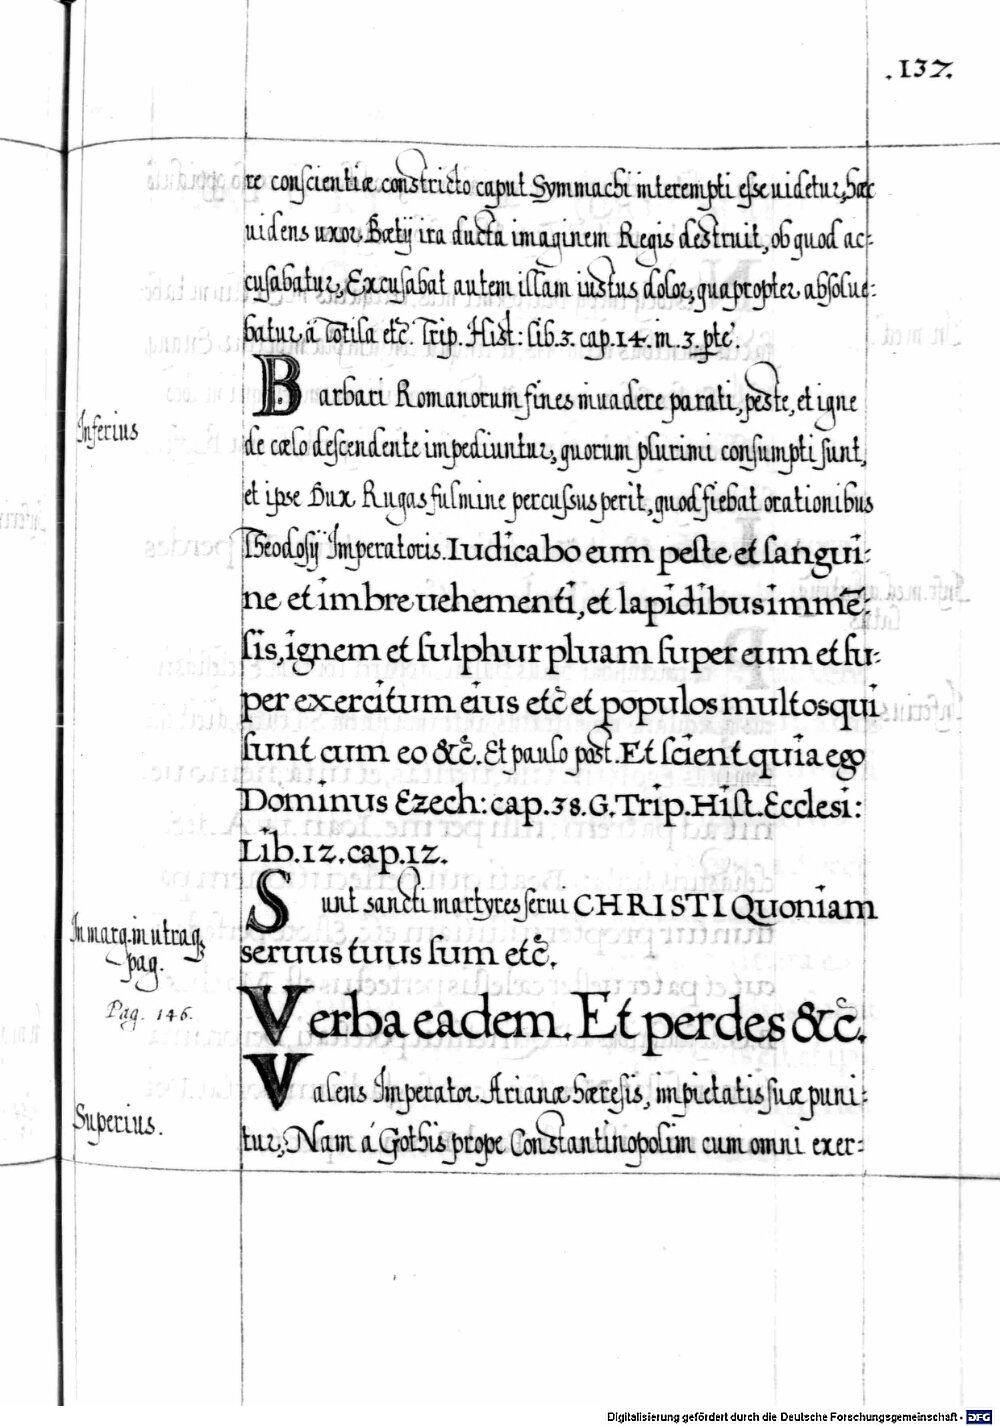 .137.
re conscientiæ constricto caput Symmachi interempti esse uidetur, hæc
uidens uxor Bœtij ira ducta imaginem Regis destruit, ob quod ac:
cusabatur, Excusabat autem illam iustus dolor, quapropter absolue:
batur, á Totila etc̃. Trip. Hist: lib.3. cap.14. in .3. pte.
Barbari Romanorum fines inuadere parati, peste, et igne
Inferius
de cælo descendente impediuntur, quorum plurimi consumpti sunt,
et ipse Dux Rugas fulmine percussus perit, quod fiebat orationibus
Theodosij Imperatoris. Iudicabo eum peste et sangui:
ne et imbre uehementi, et lapidibus immẽ:
sis, ignem et sulphur pluam super eum et su:
per exercitum eius etc̃ et populos multos qui
sunt cum eo &c̃. Et paulo post. Et scient quia ego
Dominus Ezech: cap.38.G. Trip. Hist. Ecclesi:
Lib.12. cap.12.
Sunt sancti martyres serui CHRISTI Quoniam
In marg. in utraq;
pag.
seruus tuus sum etc̃.
Pag. 146.
Verba eadem. Et perdes &c̃.
Valens Imperator Arianæ hæresis, impietatis suæ puni:
Superius.
tur, Nam á Gothis prope Constantinopolim cum omni exer:
Digitalisierung gefördert durch die Deutsche Forschungsgemeinschaft - DFG